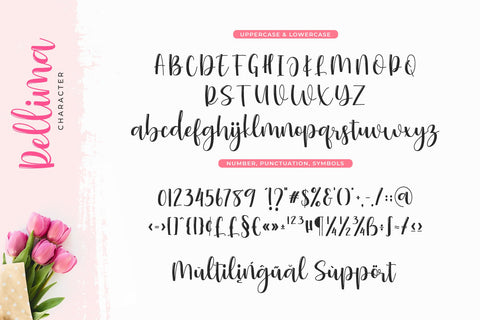 Pellima
CHARACTER
UPPERCASE & LOWERCASE
ABCDEFGHIJKLMNOPQ
RSTUVWXYZ
abcdefghijklmnopqrstuvwxyz
NUMBER, PUNCTUATION, SYMBOLS
0123456789 "!?"#$%&'()*+,-./:;@
Multilińğuãl Sùppört